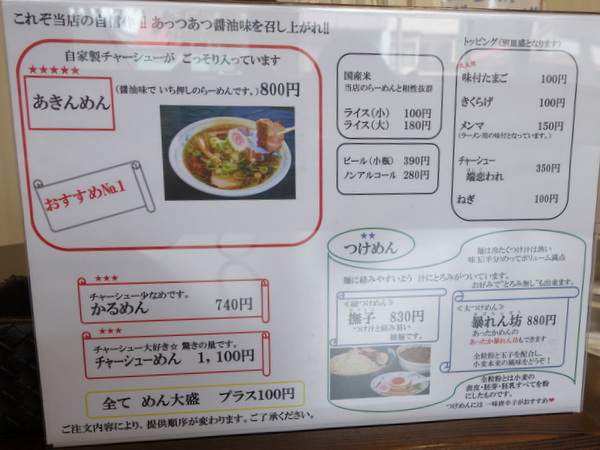 これぞ当店の自信作!! あっつあつ醤油味を召し上がれ!!
自家製チャーシューが ごっそり入っています
★★★★★
あきんめん
(醤油味で いち押しのらーめんです。)800円
おすすめNo.1
★★★
チャーシュー少なめです。
かるめん 740円
★★★
チャーシュー大好き☆ 驚きの量です。
チャーシューめん 1,100円
全て めん大盛 プラス100円
ご注文内容により、提供順序が変わります。ご了承ください。
国産米
当店のらーめんと相性抜群
ライス(小) 100円
ライス(大) 180円
ビール(小瓶) 390円
ノンアルコール 280円
トッピング(別皿盛となります)
味付たまご 100円
きくらげ 100円
メンマ 150円
(ラーメン用の味付となっています。)
チャーシュー
端恋われ 350円
ねぎ 100円
★★
つけめん
麺は冷たくつけ汁は熱い
味玉(半分)のってボリューム満点
麺に絡みやすいよう 汁にとろみがついています。
お好みで"とろみ無し"も出来ます。
≪細つけめん≫
撫子 830円
つけ汁と絡み易い
細麺です。
≪太つけめん≫
暴れん坊 880円
あったかめんの
あったか暴れん坊もできます
全粒粉と玉子を配合し、
小麦本来の風味をどうぞ！
全粒粉とは小麦の
表皮・胚芽・胚乳すべてを粉
にしたものです。
つけめんには 一味唐辛子がおすすめ❤